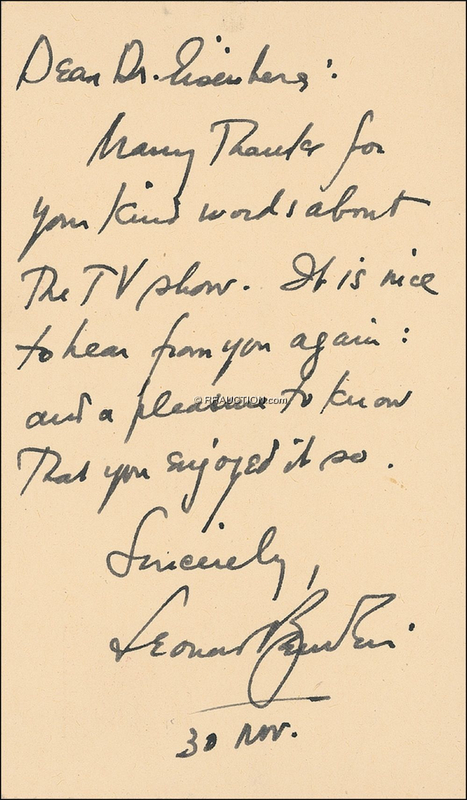 Dear Dr. Eisenberg:
Many Thanks for
your kind words about
The TV show. It is nice
to hear from you again:
and a pleasure to know
© RRAUCTION.com
That you enjoyed it so.
Sincerely,
Leonard Bernstein
30 Nov.